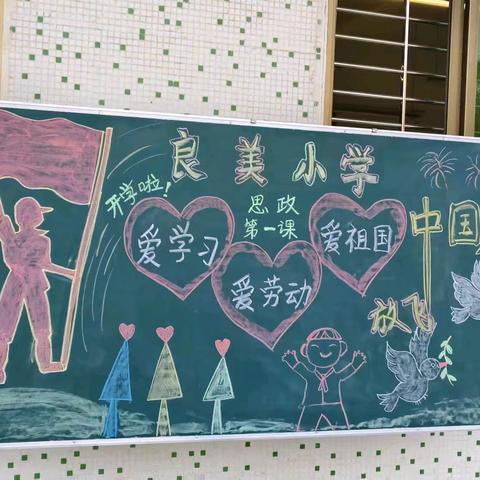 良美小学
开学啦！
思政
第一课
爱学习
爱劳动
爱祖国
放飞
中国